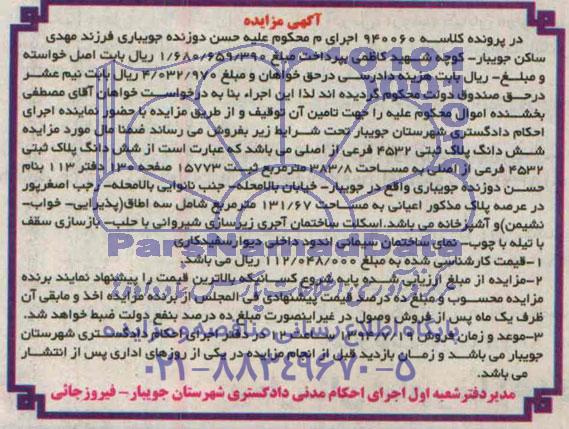 آگهی مزایده
در پرونده کلاسه ۹۴۰۰۶۰ اجرای م محکوم علیه حسن دوزنده جویباری فرزند مهدی
ساکن جویبار- کوچه شهید کاظمی بپرداخت مبلغ ۱/۶۸۰/۶۵۹/۳۹۰ ریال بابت اصل خواسته
و مبلغ- ریال بابت هزینه دادرسی درحق خواهان و مبلغ ۴/۰۳۲/۹۷۰ ریال بابت نیم عشر
درحق صندوق دولت محکوم گردیده اند لذا این اجراء بنا به درخواست خواهان آقای مصطفی
بخشنده اموال محکوم علیه را جهت تامین آن توقیف و از طریق مزایده با حضور نماینده اجرای
احکام دادگستری شهرستان جویبار تحت شرایط زیر بفروش می رساند ضمنا مال مورد مزایده
شش دانگ پلاک ثبتی ۴۵۳۲ فرعی از اصلی می باشد که عبارت است از شش دانگ پلاک ثبتی
۴۵۳۲ فرعی از اصلی به مساحت ۳۸۳/۸ مترمربع ثبت ۱۵۷۷۳ صفحه ۱۳۰ دفتر ۱۱۳ بنام
حسن دوزنده جویباری واقع در جویبار- خیابان بالامحله- جنب نانوایی بالامحله- رجب اصغرپور
در عرصه پلاک مذکور اعیانی به مساحت ۱۳۱/۶۷ مترمربع شامل سه اطاق(پذیرایی- خواب-
نشیمن)و آشپزخانه می باشد.اسکلت ساختمان آجری زیرسازی شیروانی با حلب- بازسازی سقف
با تیله با چوب- نمای ساختمان سیمانی اندود داخلی دیوارسفیدکاری
۱-قیمت کارشناسی شده به مبلغ ۱۱۲/۰۴۸/۰۰۰ ریال می باشد.
۲-مزایده از مبلغ ارزیابی شده پایه شروع کسانیکه بالاترین قیمت را پیشنهاد نمایند برنده
مزایده محسوب و مبلغ ده درصد قیمت پیشنهادی فی المجلس از برنده مزایده اخذ و مابقی آن
ظرف یک ماه پس از فروش وصول در غیراینصورت مبلغ ده درصد بنفع دولت ضبط خواهد شد.
۳-موعد و زمان فروش ۱۳۹۴/۷/۱۹ ساعت ۱۲ در دفتر اجرای احکام دادگستری شهرستان
جویبار می باشد و زمان بازدید قبل از انجام مزایده در یکی از روزهای اداری پس از انتشار
می باشد.
مدیر دفتر شعبه اول اجرای احکام مدنی دادگستری شهرستان جویبار- فیروزجائی
پایگاه اطلاع رسانی مناقصه و مزایده
۰۲۱-۸۸۳۴۹۶۷۰-۵